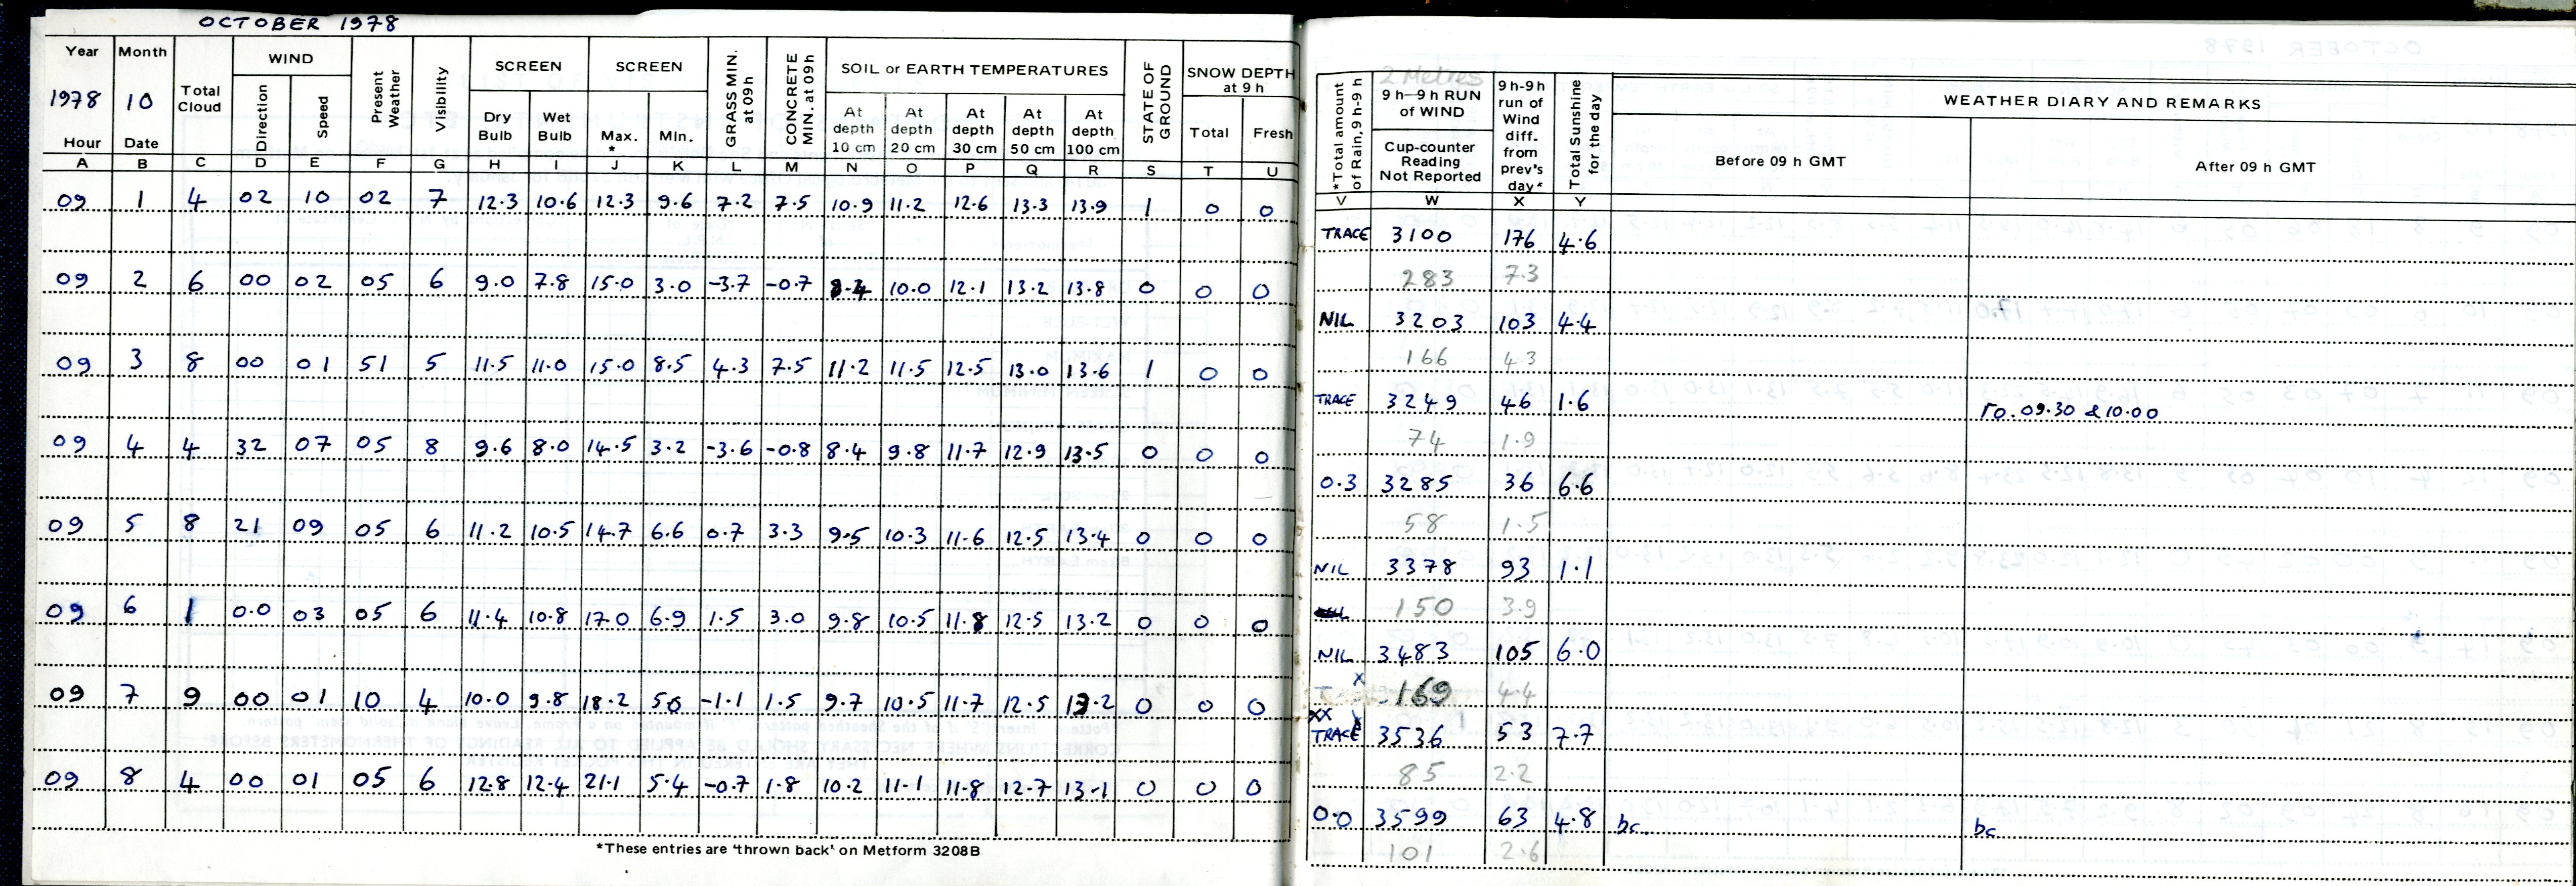 OCTOBER 1978
Year Month Total Cloud WIND Present Weather Visibility SCREEN SCREEN GRASS MIN. at 09 h CONCRETE MIN. at 09 h SOIL or EARTH TEMPERATURES STATE OF GROUND SNOW DEPTH at 9 h
1978 10 Direction Speed Dry Bulb Wet Bulb Max. * Min. At depth 10 cm At depth 20 cm At depth 30 cm At depth 50 cm At depth 100 cm Total Fresh
Hour Date
A B C D E F G H I J K L M N O P Q R S T U
09 1 4 02 10 02 7 12.3 10.6 12.3 9.6 7.2 7.5 10.9 11.2 12.6 13.3 13.9 1 0 0
09 2 6 00 02 05 6 9.0 7.8 15.0 3.0 -3.7 -0.7 8.4 10.0 12.1 13.2 13.8 0 0 0
09 3 8 00 01 51 5 11.5 11.0 15.0 8.5 4.3 7.5 11.2 11.5 12.5 13.0 13.6 1 0 0
09 4 4 32 07 05 8 9.6 8.0 14.5 3.2 -3.6 -0.8 8.4 9.8 11.7 12.9 13.5 0 0 0
09 5 8 21 09 05 6 11.2 10.5 14.7 6.6 0.7 3.3 9.5 10.3 11.6 12.5 13.4 0 0 0
09 6 1 0.0 03 05 6 11.4 10.8 17.0 6.9 1.5 3.0 9.8 10.5 11.8 12.5 13.2 0 0 0
09 7 9 00 01 10 4 10.0 9.8 18.2 5.6 -1.1 1.5 9.7 10.5 11.7 12.5 13.2 0 0 0
09 8 4 00 01 05 6 12.8 12.4 21.1 5.4 -0.7 1.8 10.2 11.1 11.8 12.7 13.1 0 0 0
*These entries are 'thrown back' on Metform 3208B
2 Metres
*Total amount of Rain, 9 h-9 h 9 h—9 h RUN of WIND 9 h-9 h run of Wind diff. from prev's day* Total Sunshine for the day WEATHER DIARY AND REMARKS
Cup-counter Reading Not Reported Before 09 h GMT After 09 h GMT
V W X Y
TRACE 3100 176 4.6
283 7.3
NIL 3203 103 4.4
166 4.3
TRACE 3249 46 1.6 ro. 09.30 & 10.00
74 1.9
0.3 3285 36 6.6
58 1.5
NIL 3378 93 1.1
150 3.9
NIL 3483 105 6.0
T x 169 4.4
xx x
TRACE 3536 53 7.7
85 2.2
0.0 3599 63 4.8 bc. bc
101 2.6